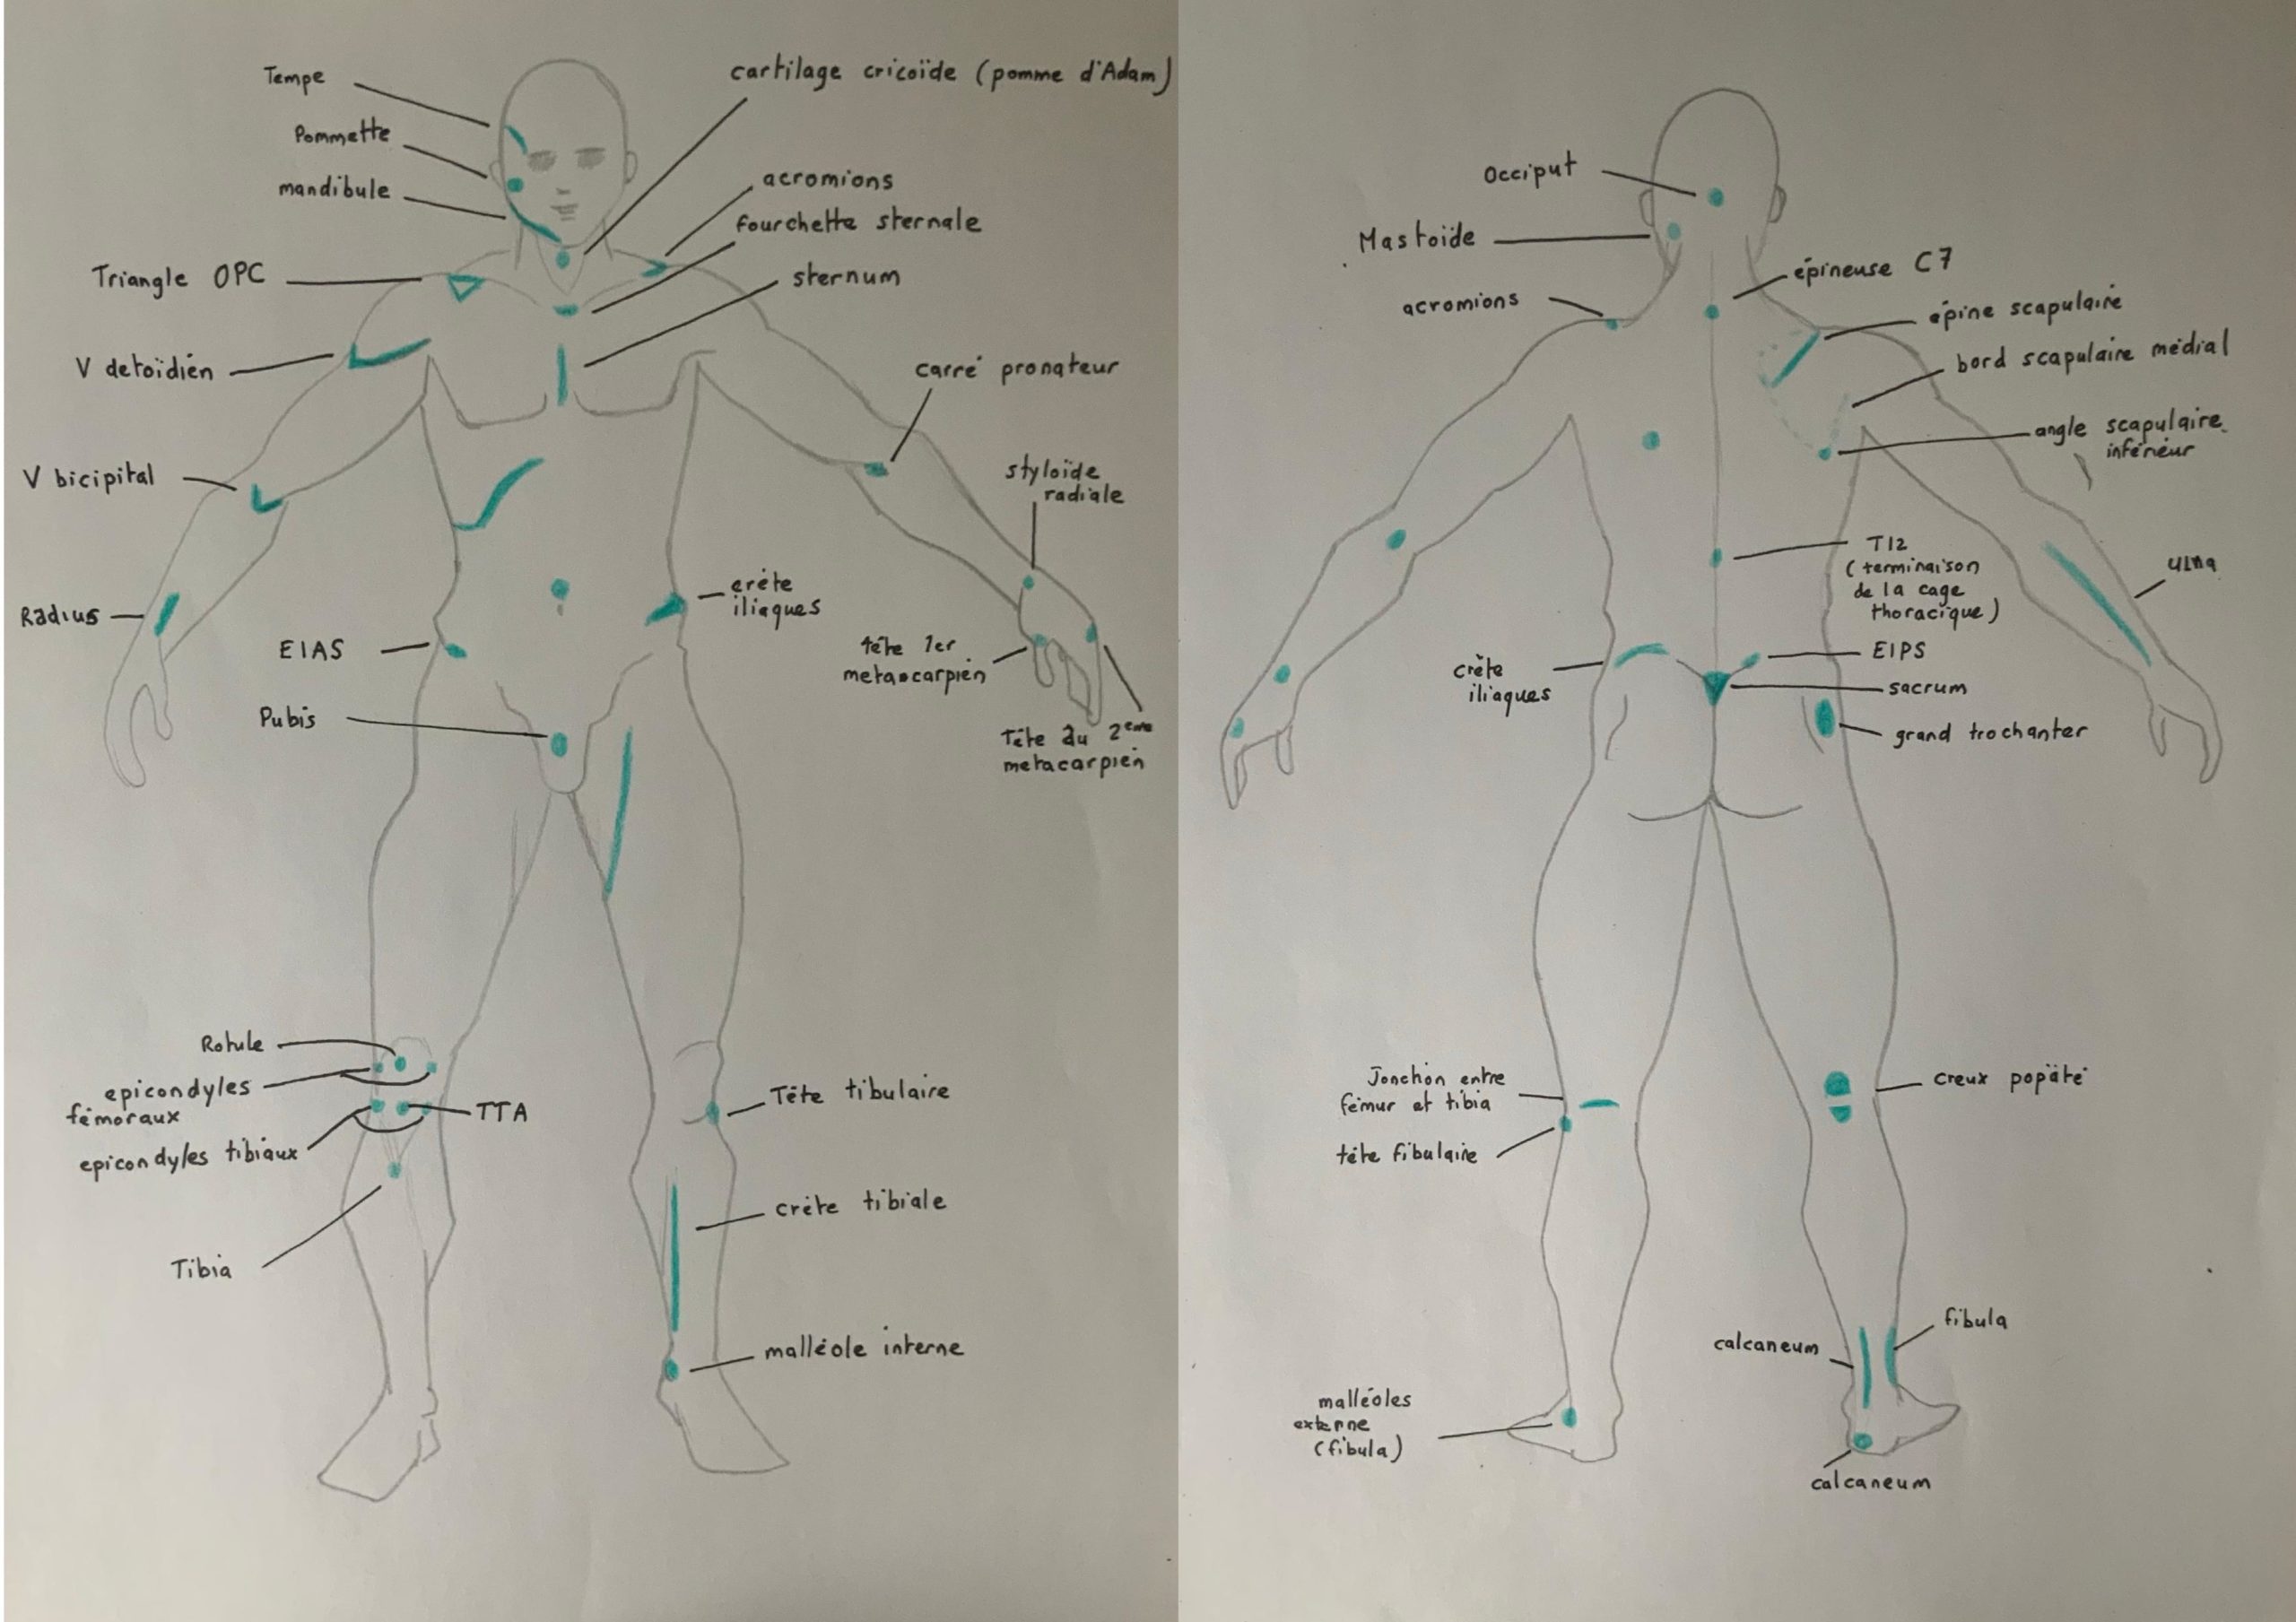 Tempe
Pommette
mandibule
Triangle OPC
V detoïdien
V bicipital
Radius
EIAS
Pubis
Rotule
epicondyles
fémoraux
epicondyles tibiaux
Tibia
cartilage cricoïde (pomme d'Adam)
acromions
fourchette sternale
sternum
carré pronateur
styloïde
radiale
crête
iliaques
tête 1er
metacarpien
Tête du 2eme
metacarpien
TTA
Tête tibulaire
crète tibiale
malléole interne
Occiput
Mastoïde
acromions
crète
iliaques
Jonction entre
fémur et tibia
tête fibulaire
malléoles
externe
(fibula)
épineuse C7
épine scapulaire
bord scapulaire médial
angle scapulaire
inférieur
T12
(terminaison
de la cage
thoracique)
ulna
EIPS
sacrum
grand trochanter
creux popäté
fibula
calcaneum
calcaneum